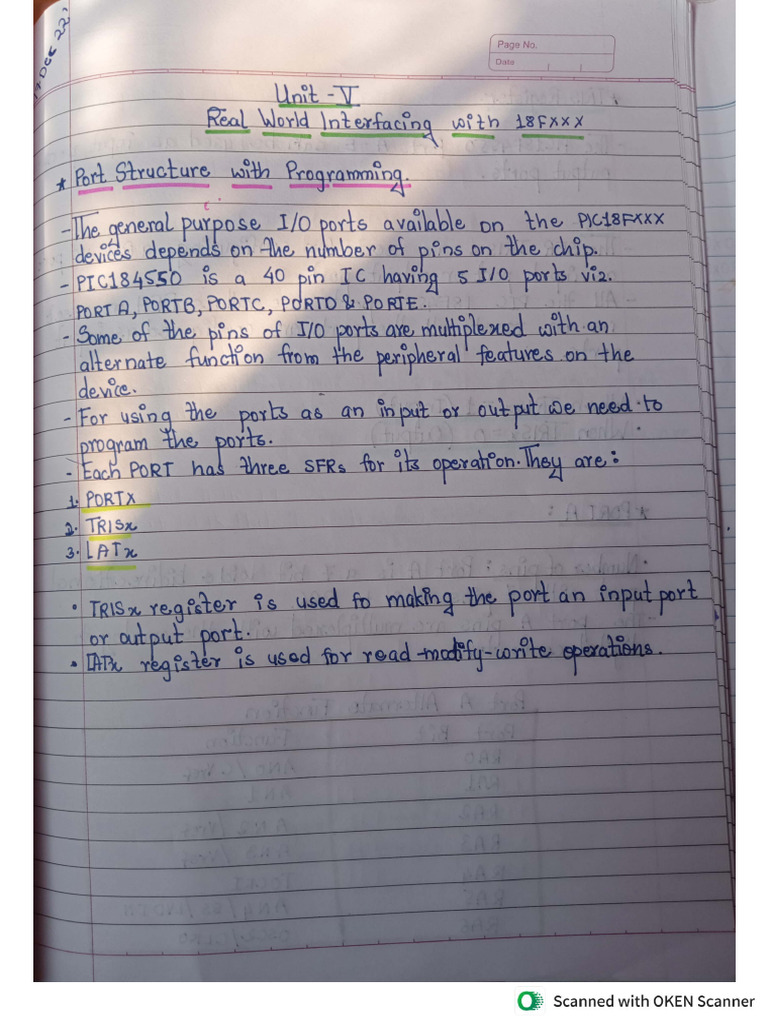 Dec 22,
Page No.
Date
Unit - V
Real World Interfacing with 18FXXX
* Port Structure with Programming.
- The general purpose I/O ports available on the PIC18FXXX
devices depends on the number of pins on the chip.
- PIC184550 is a 40 pin IC having 5 I/O ports viz.
PORTA, PORTB, PORTC, PORTD & PORTE.
- Some of the pins of I/O ports are multiplexed with an
alternate function from the peripheral features on the
device.
- For using the ports as an input or output we need to
program the ports.
- Each PORT has three SFRs for its operation. They are:
1. PORTX
2. TRISx
3. LATx
• TRISx register is used fo making the port an input port
or output port.
• LATx register is used for read-modify-write operations.
Scanned with OKEN Scanner